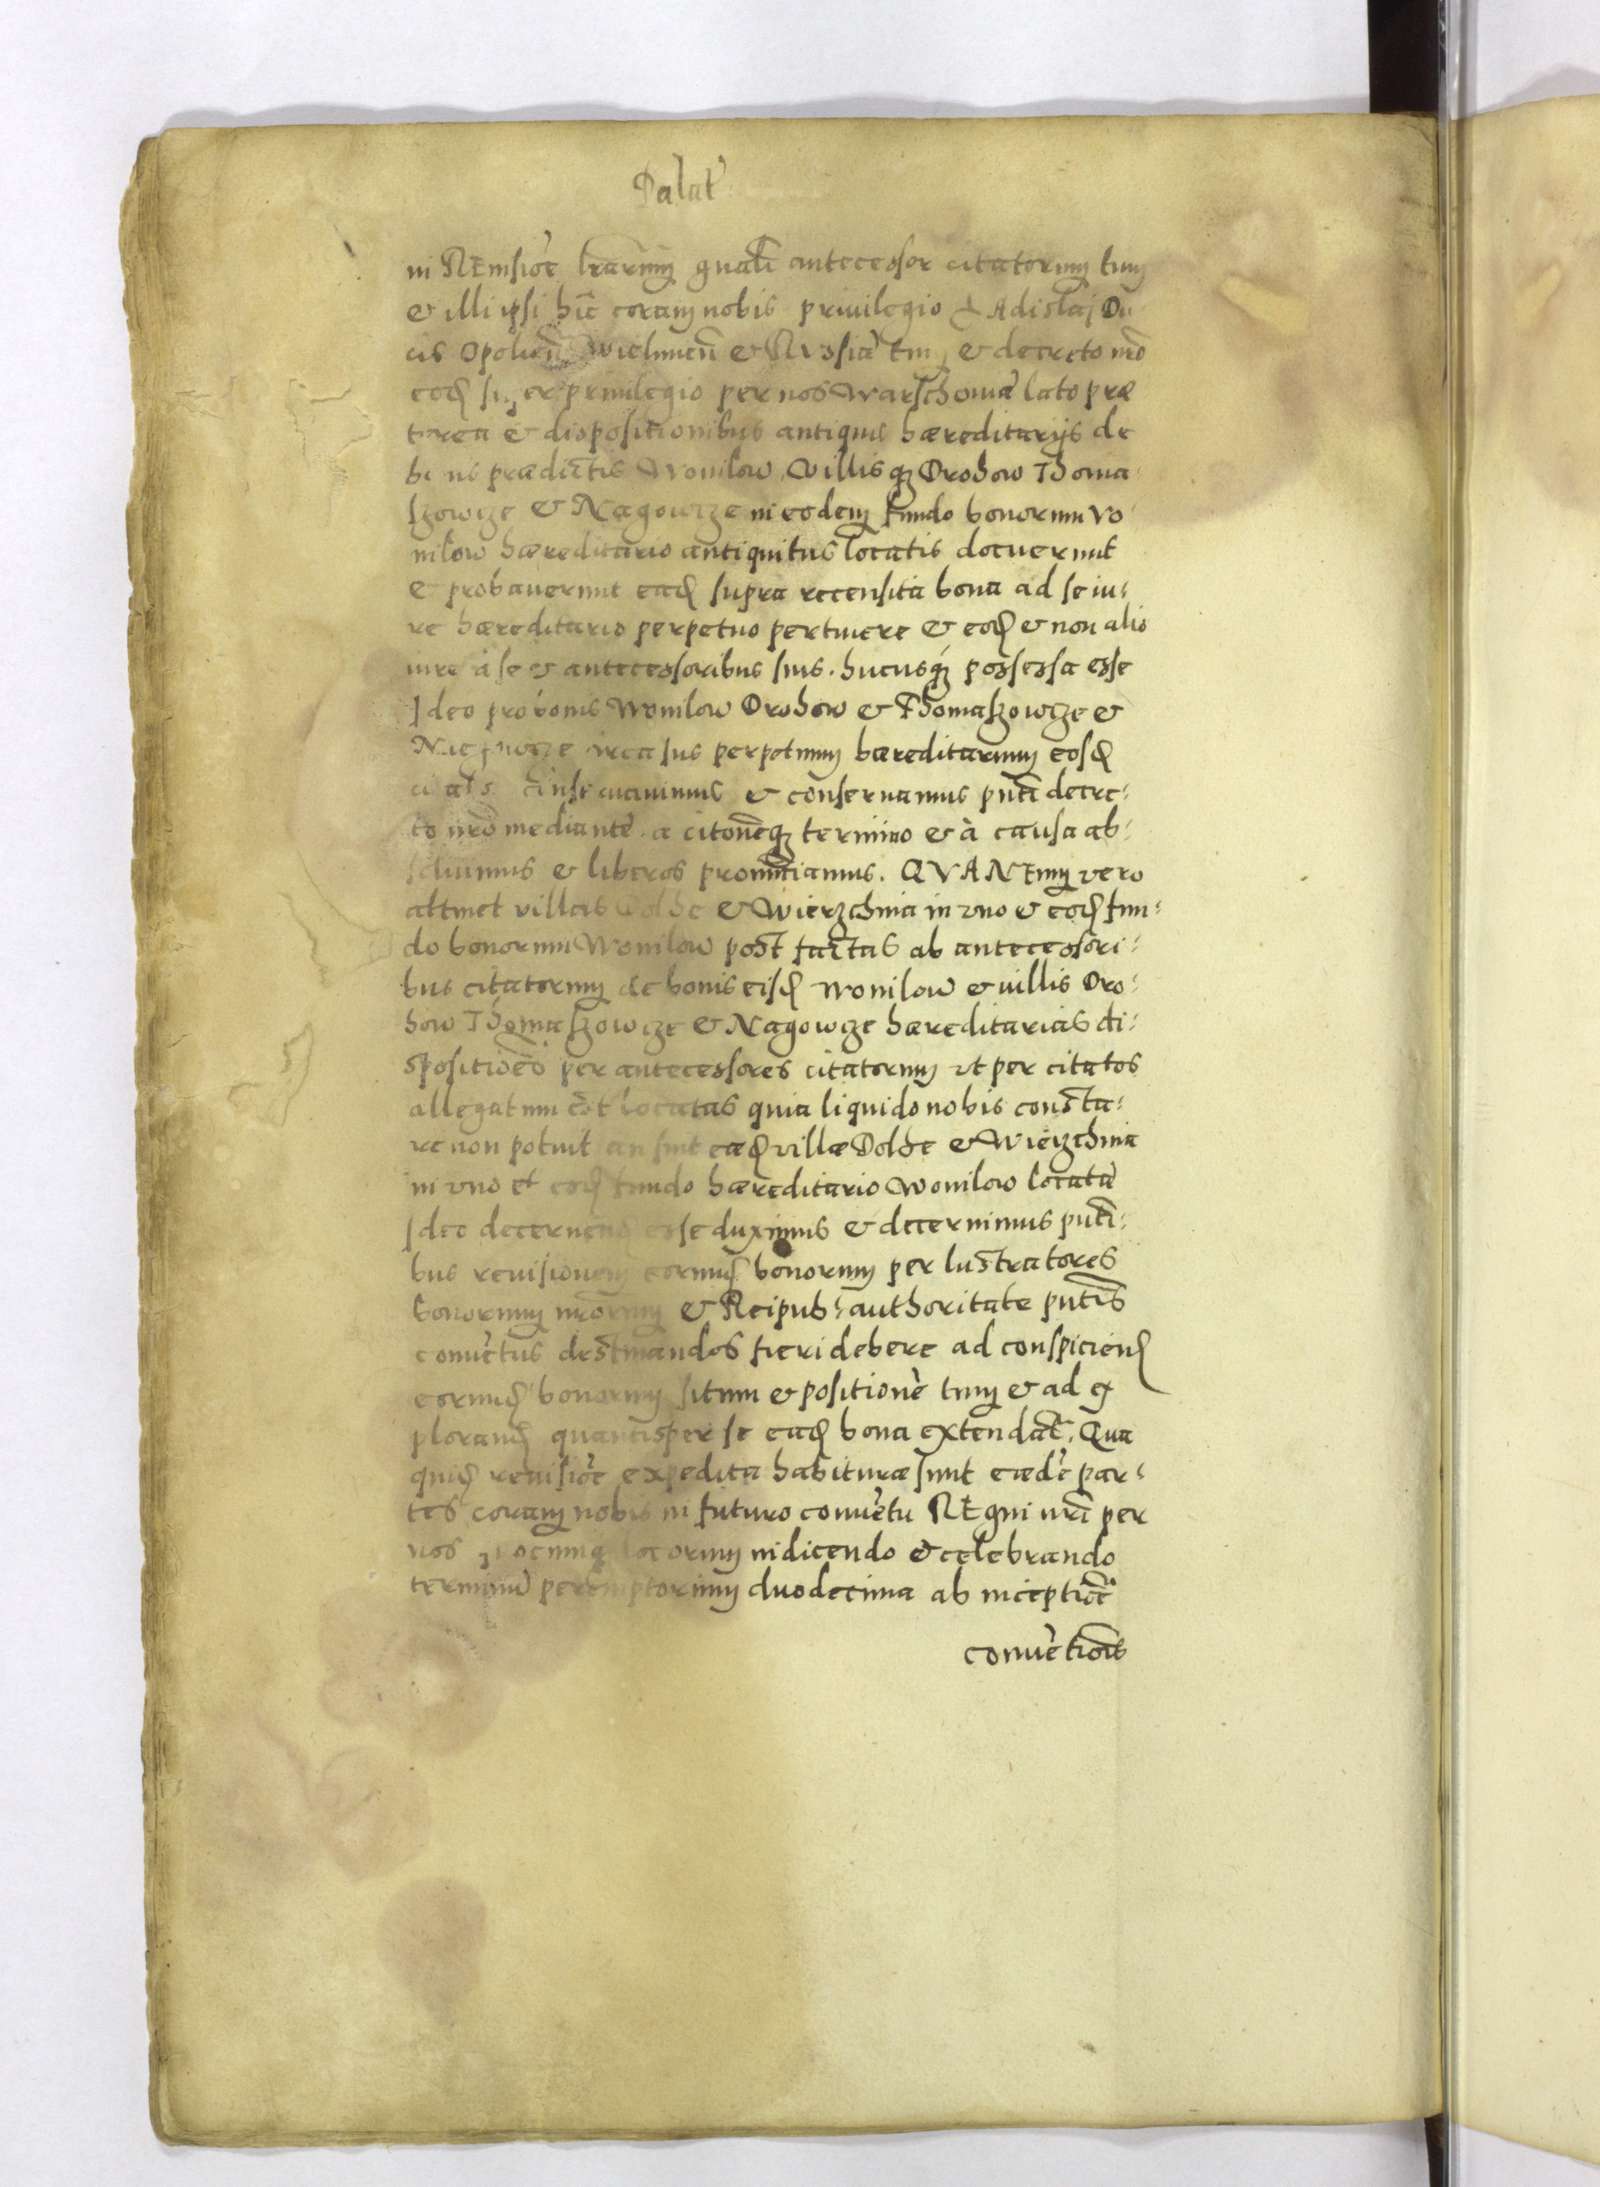 Palat
in REmsioe lrarum quali antecessor citatorum tum
& illi ipsi hic coram nobis privilegio Ladislaj Du
cis Opolien Wielunen & Russiæ tum & decreto nro
eod super privilegio per nos Warschoviæ lato præ
terea & dispositionibus antiquis hæreditarijs de
bonis prædictis Wonilow Villisq Drohow Thoma
szowcze & Nagowcze in eodem fundo bonorum Vo
nilow hæreditario antiquitus locatis docuerunt
& probaverunt ead supra recensita bona ad se iu-
re hæreditario perpetuo pertinere & eod & non alio
iure à se & antecessoribus suis hucusq possessa esse
Ideo pro bonis Wonilow Drohow & Thomaszowcze &
Nagowcze circa jus perpetuum hæreditarium eosd
citatos conservavimus & conservamus pnti decre-
to nro mediante a citoneq termino & à causa ab-
solvimus & liberos pronuntiamus. QVANTum vero
attinet villas Dolhe & Wierzchnia in uno & eod fun-
do bonorum Wonilow post factas ab antecessori-
bus citatorum de bonis eisd Wonilow & villis Dro-
how Thomaszowcze & Nagowcze hæreditarias di-
spositioes per antecessores citatorum ut per citatos
allegatum est locatas quia liquido nobis consta-
re non potuit an sint ead villæ Dolhe & Wierzchnia
in uno et eod fundo hæreditario Wonilow locatæ
Ideo decernend esse duximus & decernimus pnti-
bus revisionem eorund bonorum per lustratores
bonorum nrorum & Reipub. authoritate pntis
conventus destinandos fieri debere ad conspiciend
eorund bonorum situm & positione tum & ad ex
plorand quantisper se ead bona extendat. Qua
quid revisioe expedita habituræ sunt eæde par-
tes coram nobis in futuro conventu REgni nri per
nos quocunq locorum indicendo & celebrando
terminu peremptorium duodecima ab inceptioe
conventiois